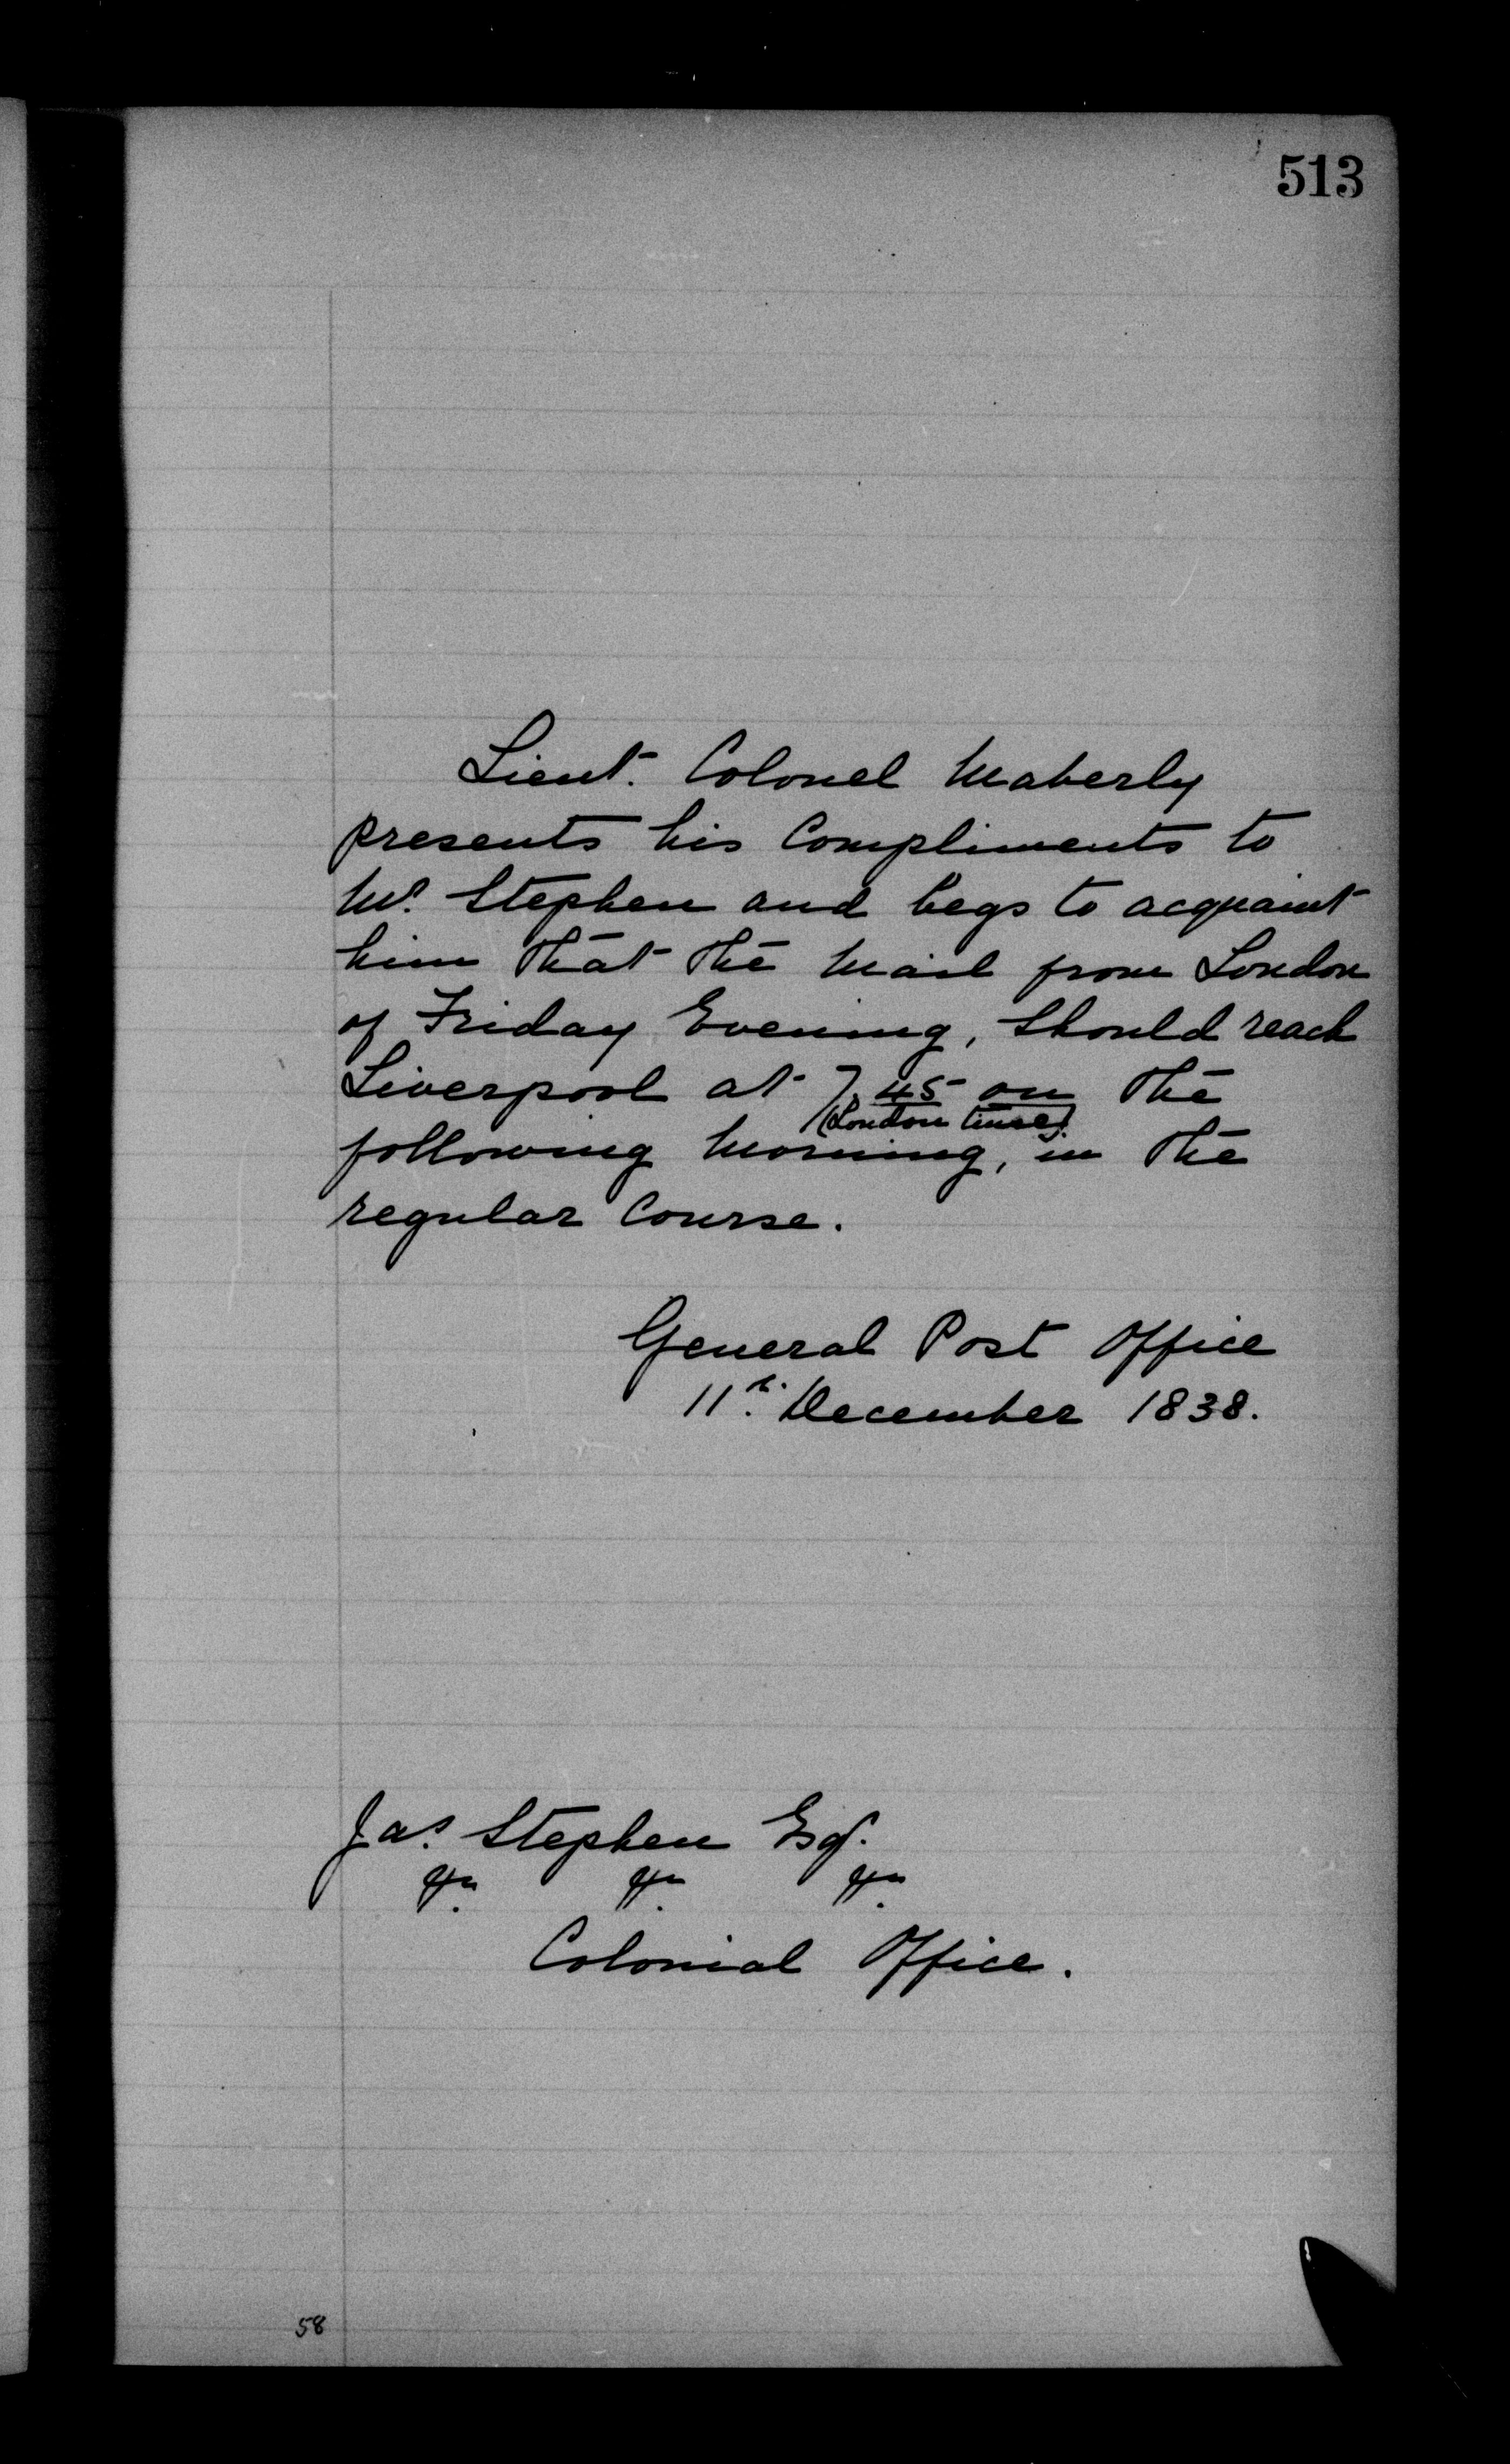 513
Lieut. Colonel Maberly
presents his Compliments to
Mr. Stephen and begs to acquaint
him that the Mail from London
of Friday Evening, should reach
Liverpool at 7.45 on the
(London time).
following Morning, in the
regular Course.
General Post Office
11th. December 1838.
Jas. Stephen Esqr.
Colonial Office.
58